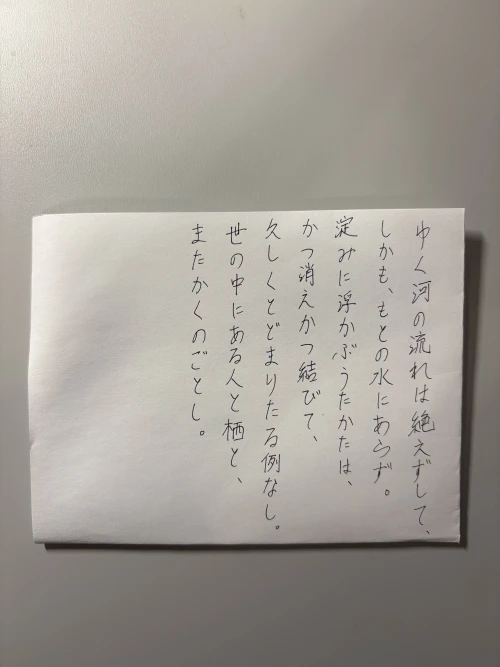 ゆく河の流れは絶えずして、
しかも、もとの水にあらず。
淀みに浮かぶうたかたは、
かつ消えかつ結びて、
久しくとどまりたる例なし。
世の中にある人と栖と、
またかくのごとし。